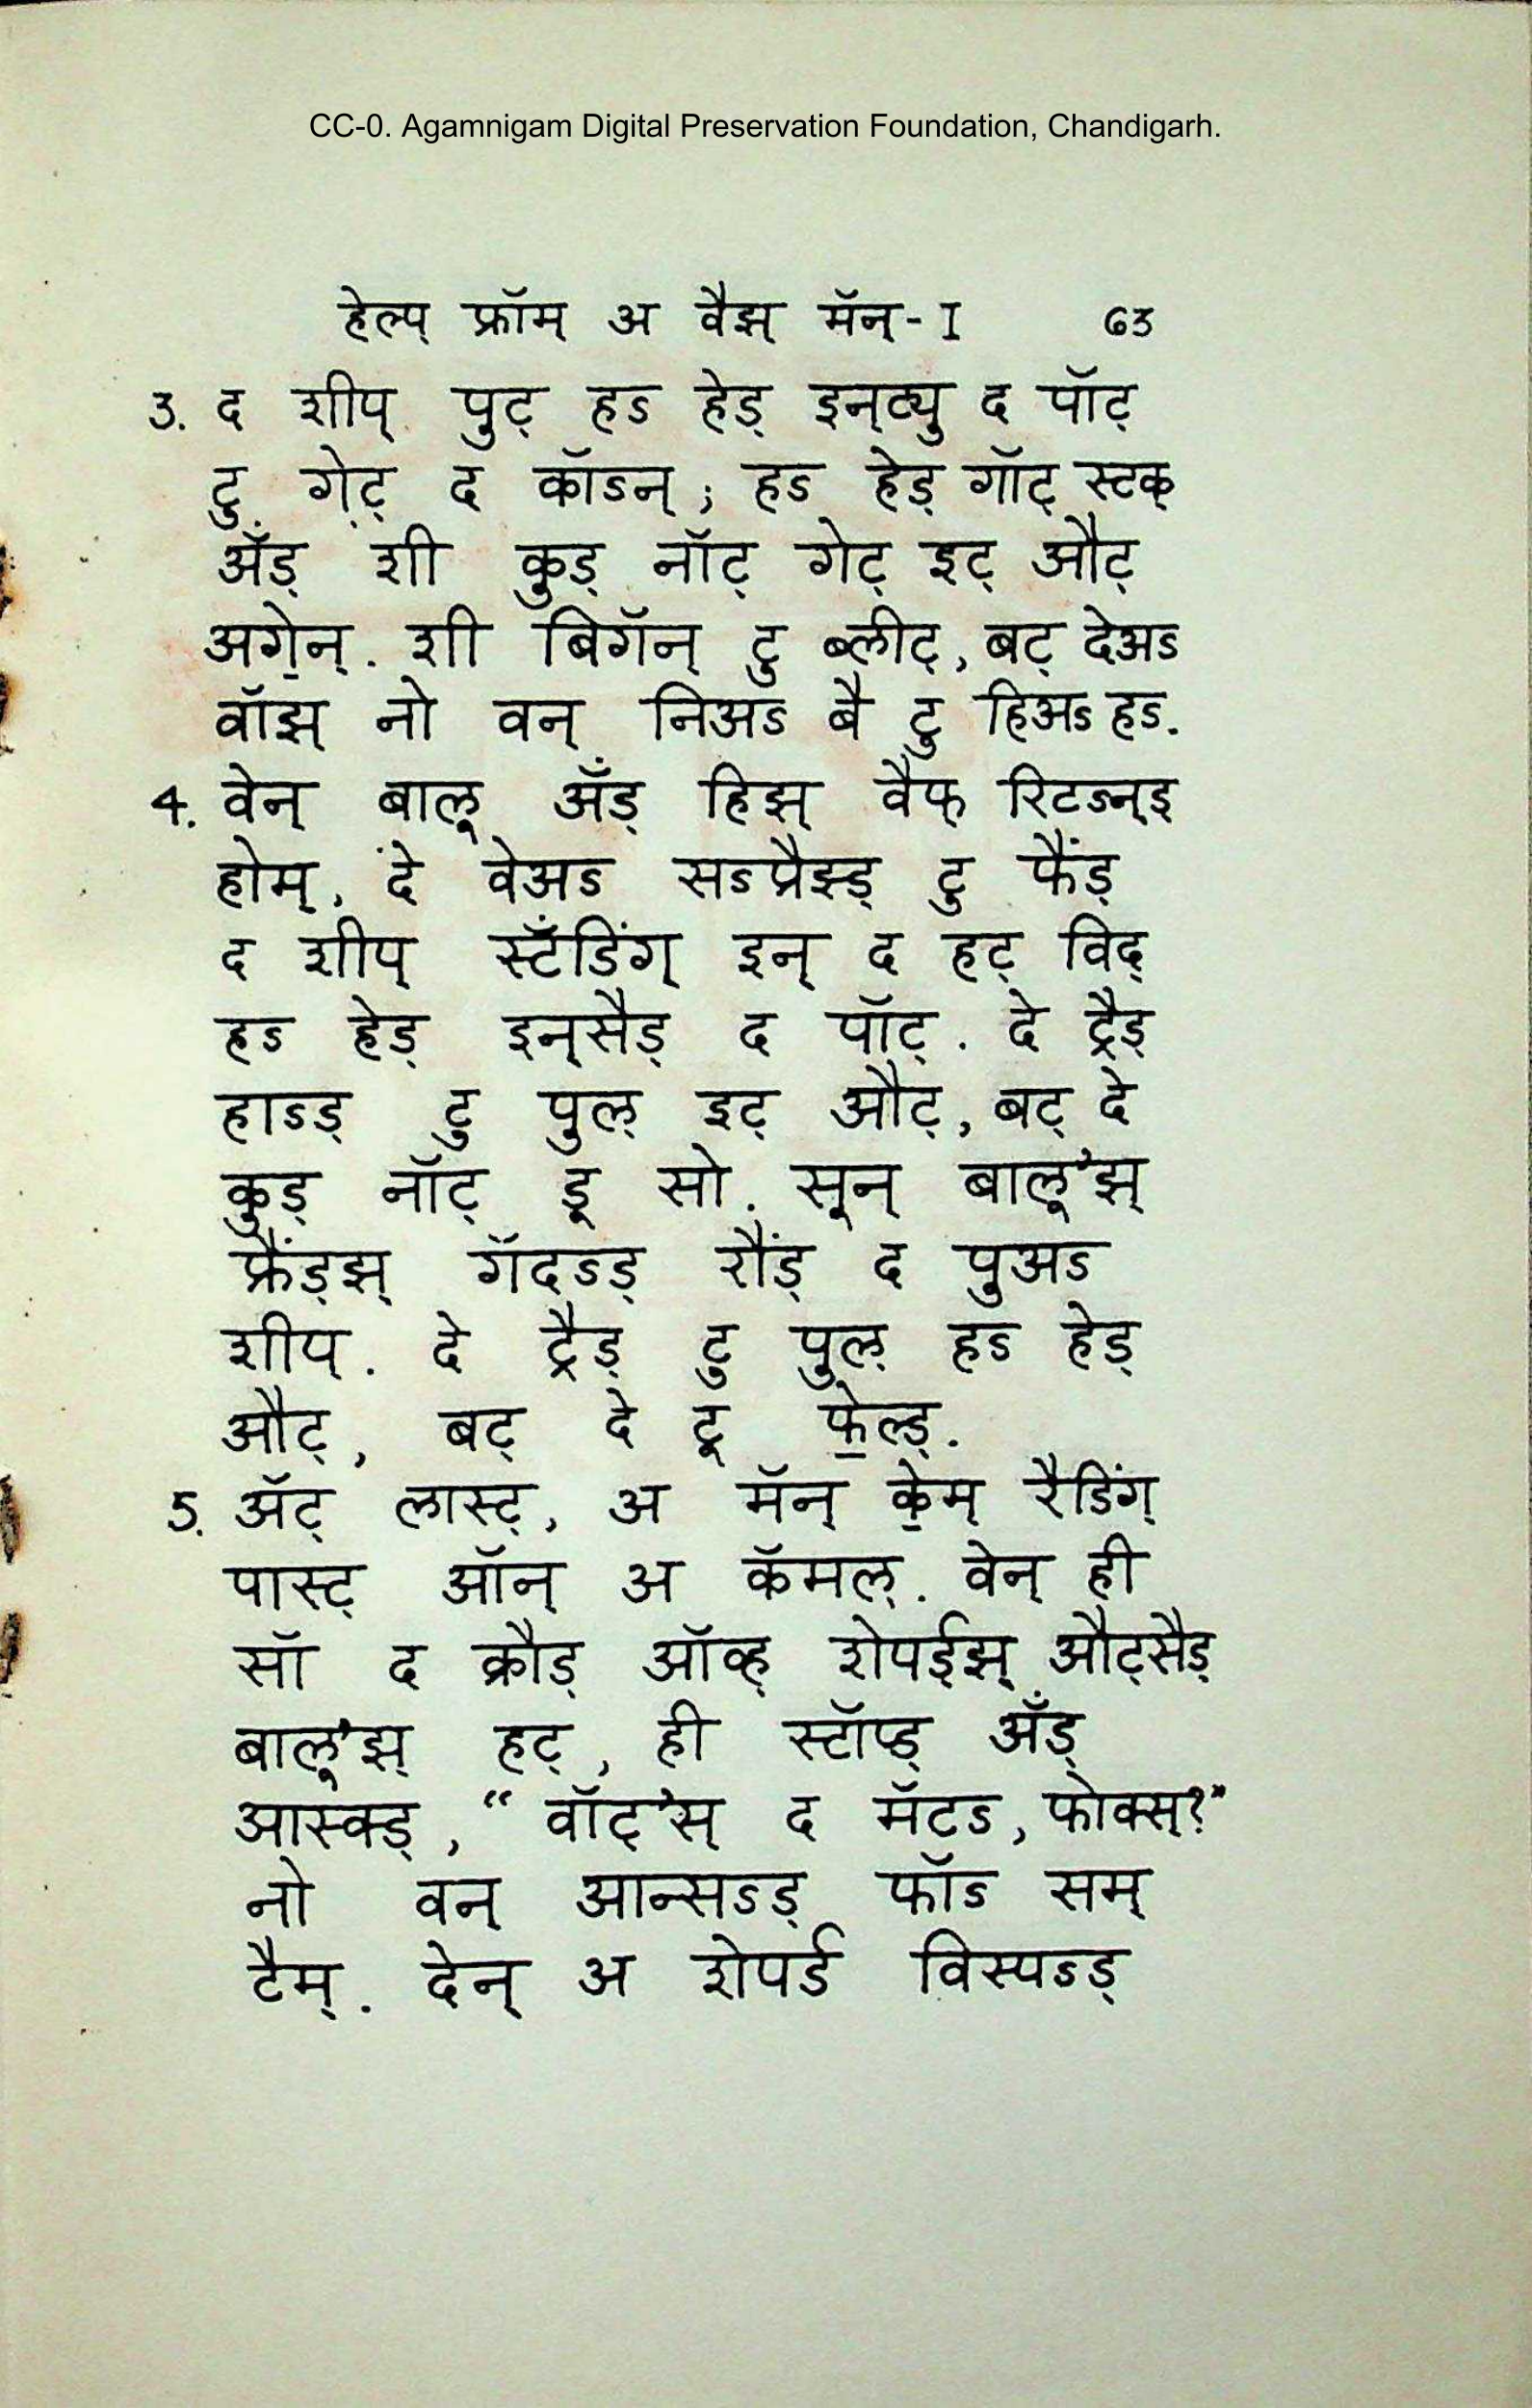 CC-0. Agamnigam Digital Preservation Foundation, Chandigarh.
हेल्प् फ्रॉम् अ वैझ् मॅन्-I 63
3. द शीप् पुट् हऽ हेड् इन्ट्यु द पॉट्
टु गे़ट् द कॉऽन्; हऽ हेड् गॉट् स्टक्
अँड् शी कुड् नॉट् गेट् इट् औट्
अगे॒न्. शी बिगॅन् टु ब्लीट्, बट् देअऽ
वॉझ् नो वन् निअऽ बै टु हिअऽ हऽ.
4. वेन् बालू अँड् हिझ् वैफ् रिटऽन्ड्
होम्, दे वेअऽ सऽप्रैझ्ड् टु फैंड्
द शीप् स्टँडिंग् इन् द हट् विद्
हऽ हेड् इन्सैड् द पॉट्. दे ट्रैड्
हाऽड् टु पुल् इट् औट्, बट् दे
कुड् नॉट् डू सो. सून् बालू'झ्
फ्रैंड्झ् गॅदऽड् रौंड् द पुअऽ
शीप्. दे ट्रैड् टु पुल् हऽ हेड्
औट्, बट् दे टू फे॒ल्ड्.
5. ॲट् लास्ट्, अ मॅन् के॒म् रैडिंग्
पास्ट् ऑन् अ कॅमल्. वेन् ही
सॉ द क्रौड् ऑव्ह् शेपर्ड्झ् औट्सैड्
बालू'झ् हट्, ही स्टॉप्ड् अँड्
आस्क्ड्, “ वॉट्'स् द मॅटऽ, फोक्स्?”
नो वन् आन्सऽड् फॉऽ सम्
टैम्. देन् अ शेपर्ड विस्पऽड्